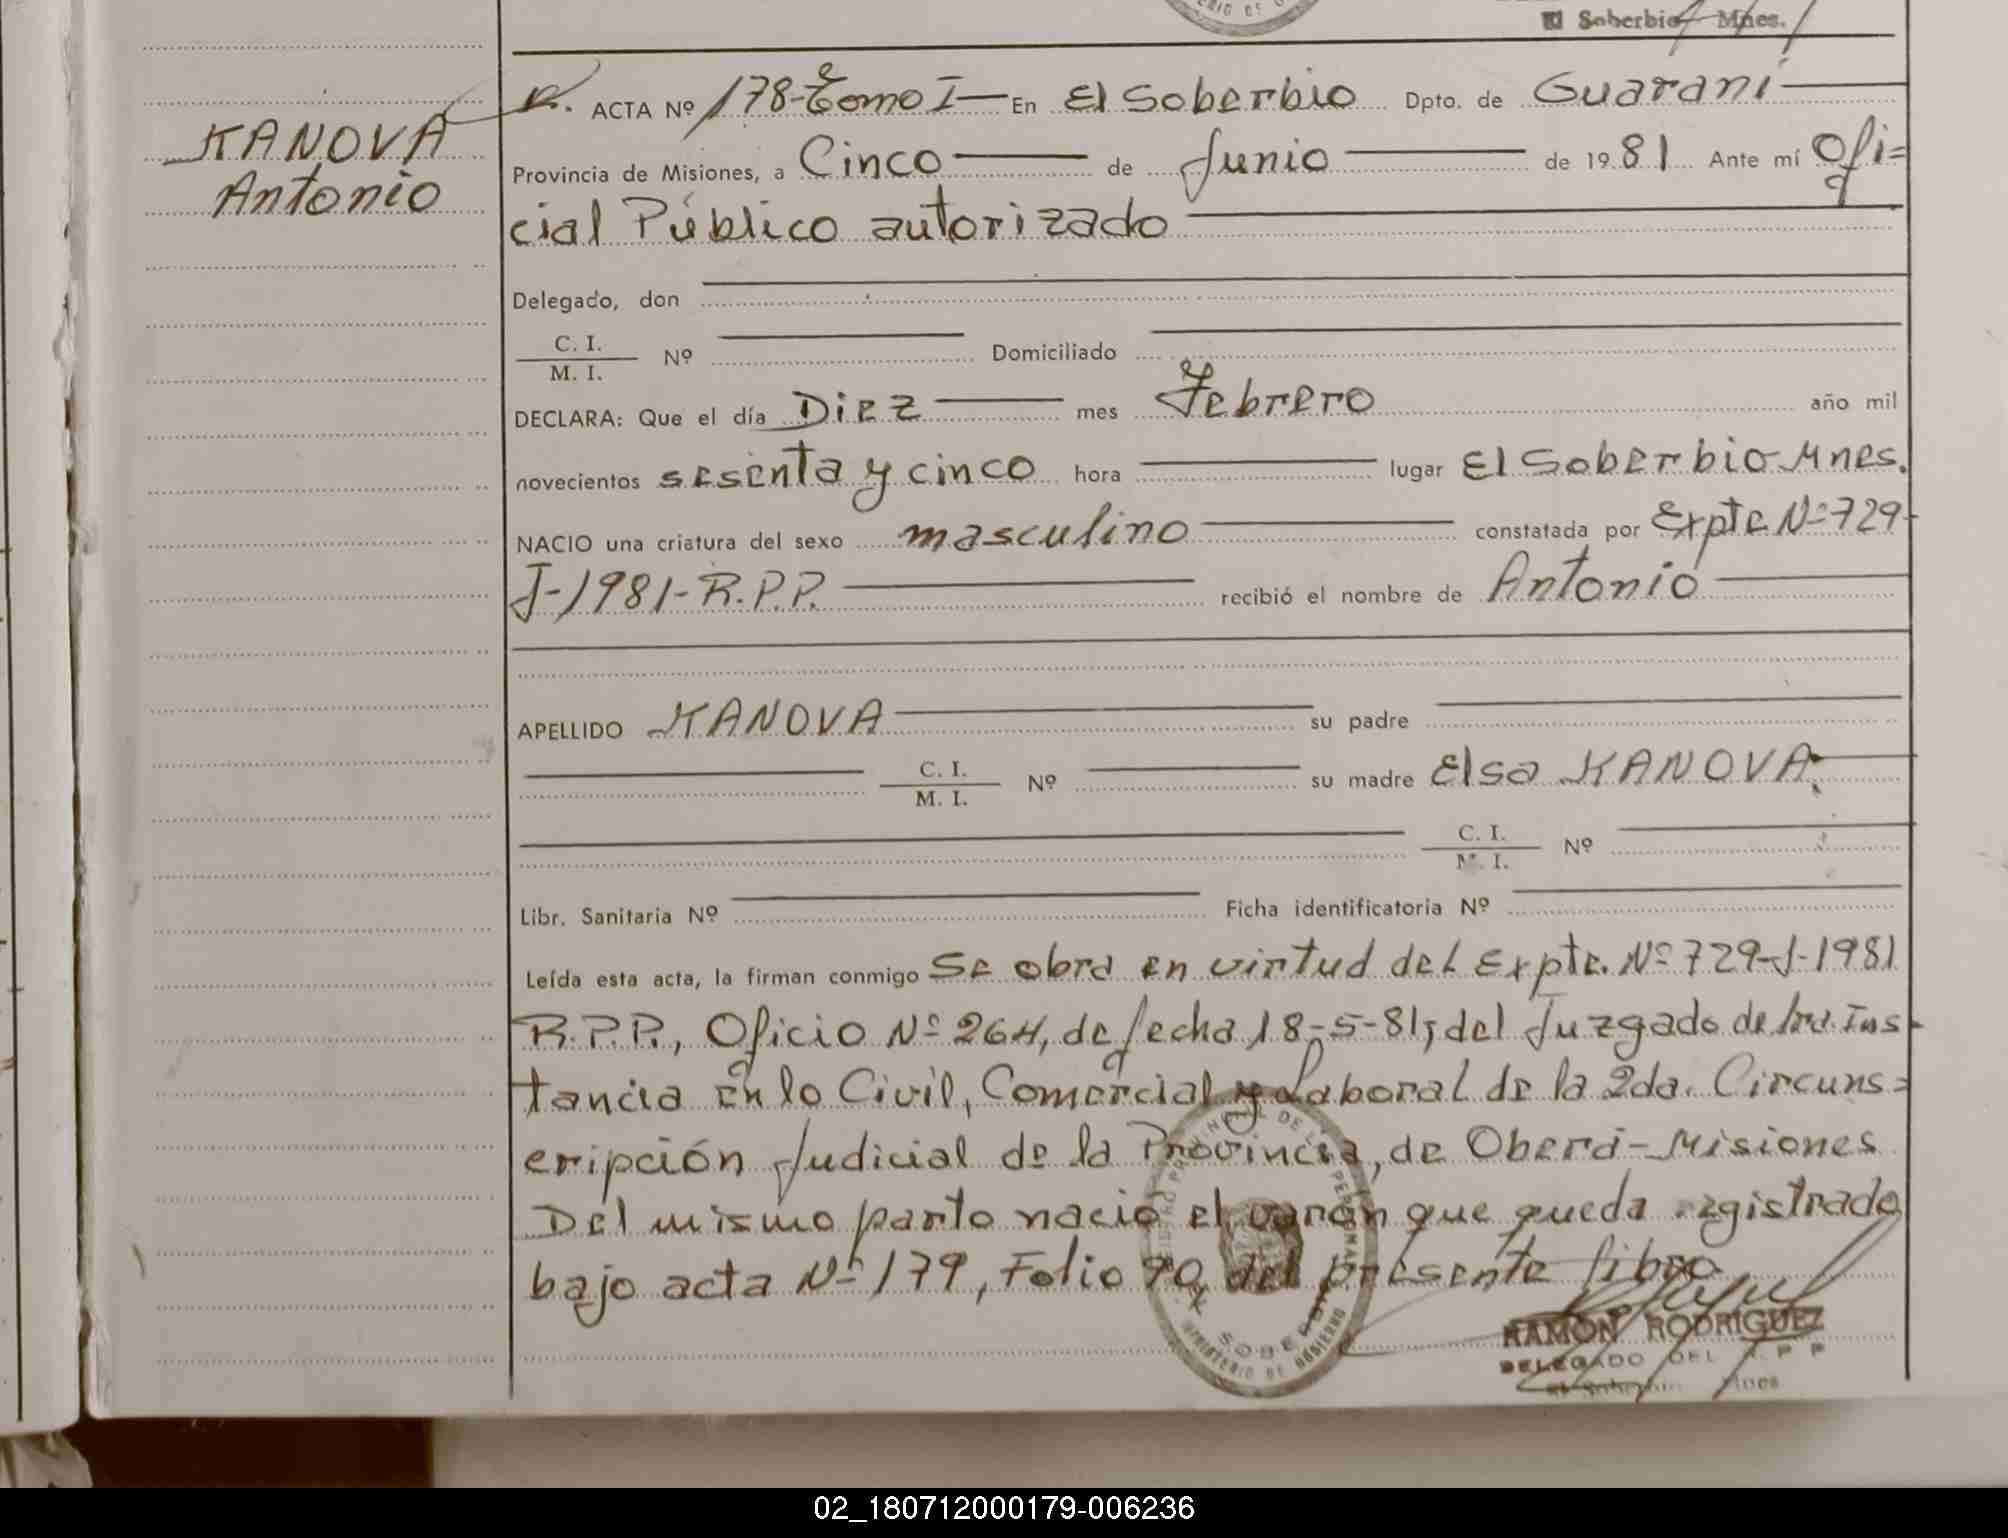 El Soberbio Mnes.
ACTA Nº 178-Tomo I En El Soberbio Dpto. de Guaraní
KANOVA
Antonio
Provincia de Misiones, a Cinco de Junio de 1981 Ante mí Ofi=
cial Público autorizado
Delegado, don
C. I.
M. I. Nº Domiciliado
DECLARA: Que el día Diez mes Febrero año mil
novecientos sesenta y cinco hora lugar El Soberbio-Mnes.
NACIO una criatura del sexo masculino constatada por Expte Nº 729-
J-1981-R.P.P. recibió el nombre de Antonio
APELLIDO KANOVA su padre
C. I.
M. I. Nº su madre Elsa KANOVA.
C. I.
M. I. Nº
Libr. Sanitaria Nº Ficha identificatoria Nº
Leída esta acta, la firman conmigo Se obra en virtud del Expte. Nº 729-J-1981
R.P.P., Oficio Nº 264, de fecha 18-5-81, del Juzgado de 1ra. Ins-
tancia en lo Civil, Comercial y Laboral de la 2da. Circuns=
cripción Judicial de la Provincia, de Oberá-Misiones
Del mismo parto nació el varón que queda registrado
bajo acta Nº 179, Folio 90 del presente libro
RAMON RODRIGUEZ
DELEGADO DEL R P P
El Soberbio Mnes
02_180712000179-006236